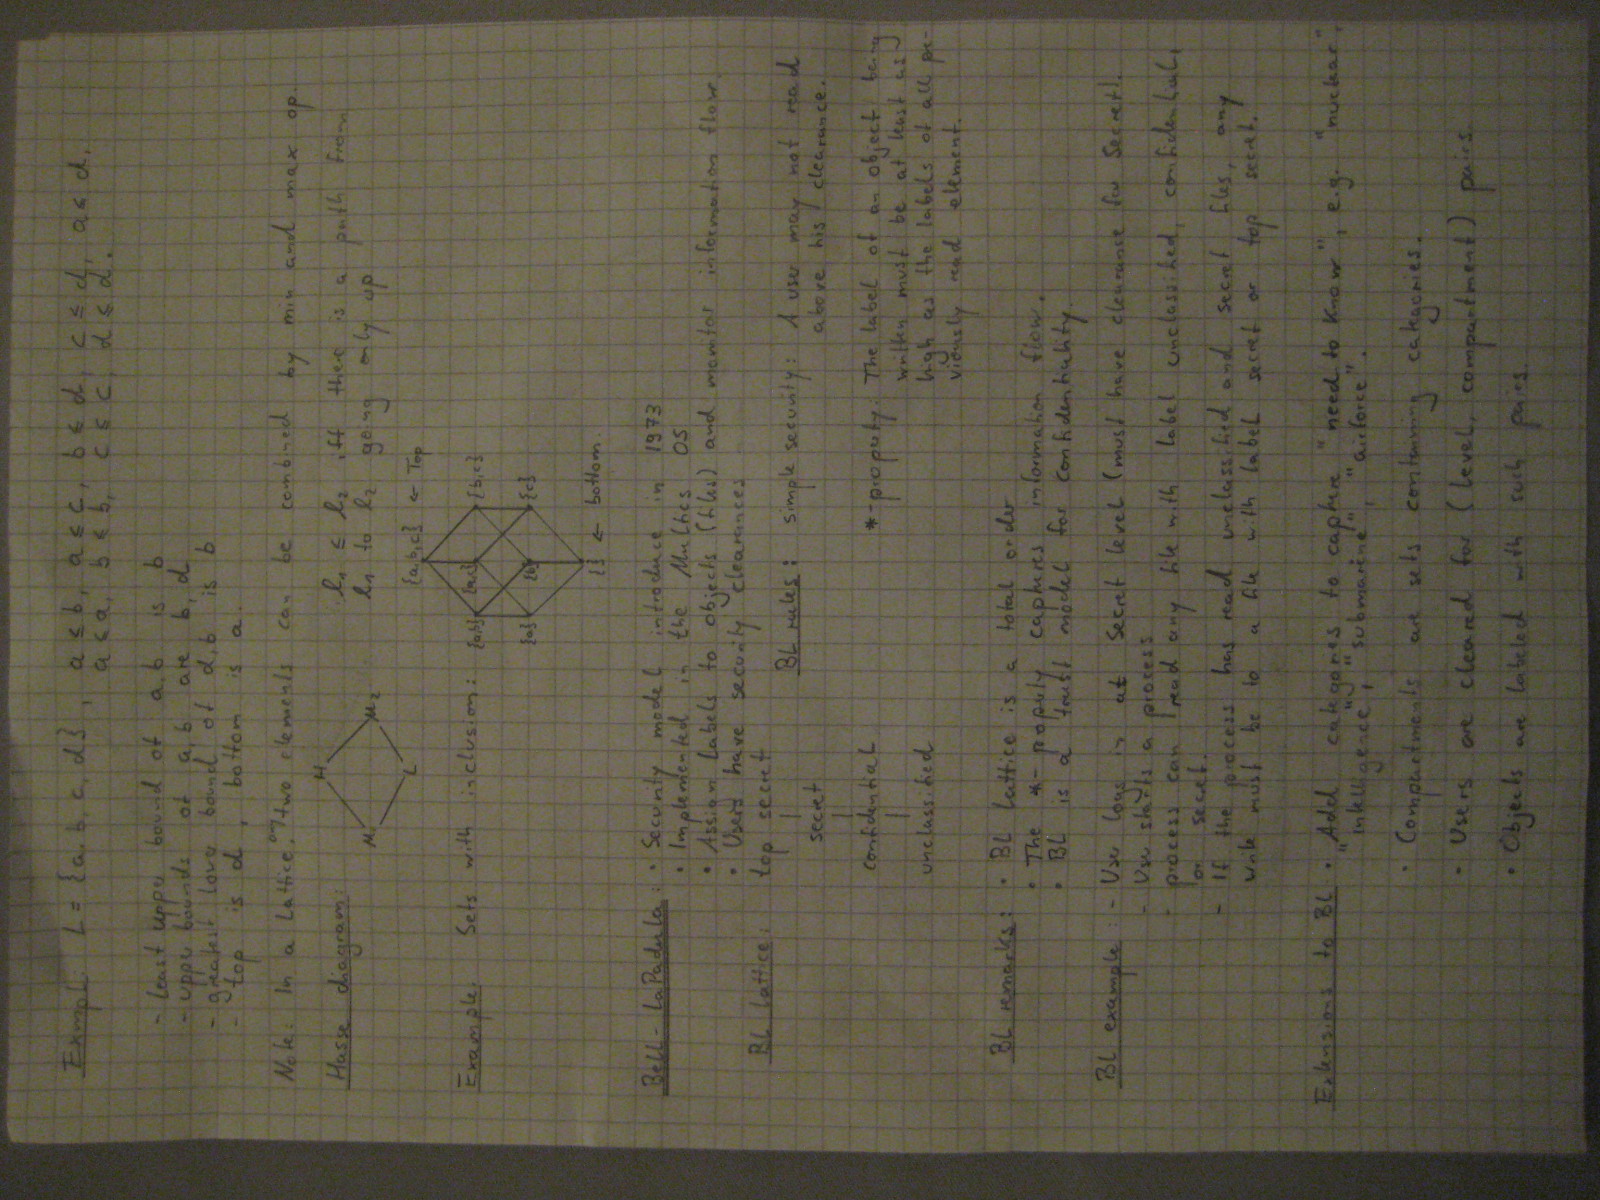 Example: L = {a, b, c, d}, a ≤ b, a ≤ c, b ≤ d, c ≤ d, a ≤ d,
a ≤ a, b ≤ b, c ≤ c, d ≤ d.
- least upper bound of a,b is b
- upper bounds of a, b are b, d
- greatest lower bound of d,b is b
- top is d, bottom is a.
Note: In a lattice, any two elements can be combined by min and max op.
Hasse diagram:
H
M1
M2
L
l1 ≤ l2, iff there is a path from
l1 to l2 going only up
Example: Sets with inclusion:
{a,b,c} ← Top
{a,b} {a,c} {b,c}
{a} {b} {c}
{} ← bottom.
Bell-LaPadula: • Security model introduce in 1973
• Implemented in the Multics OS
• Assign labels to objects (files) and monitor information flow.
• Users have security clearances
BL lattice: top secret
secret
confidential
unclassified
BL rules: simple security: A user may not read
above his clearance.
*-property: The label of an object being
written must be at least as
high as the labels of all pre-
viously read element.
BL remarks: • BL lattice is a total order
• The *-property captures information flow.
• BL is a trust model for confidentiality.
BL example: - User logs in at Secret level (must have clearance for Secret).
- User starts a process
- process can read any file with label unclassified, confidential,
or secret.
- If the process has read unclassified and secret files, any
write must be to a file with label secret or top secret.
Extensions to BL • Add categories to capture "need to know", e.g. "nuclear",
"intelligence", "submarine", "airforce".
• Compartments are sets containing categories.
• Users are cleared for (level, compartment) pairs.
• Objects are labeled with such pairs.